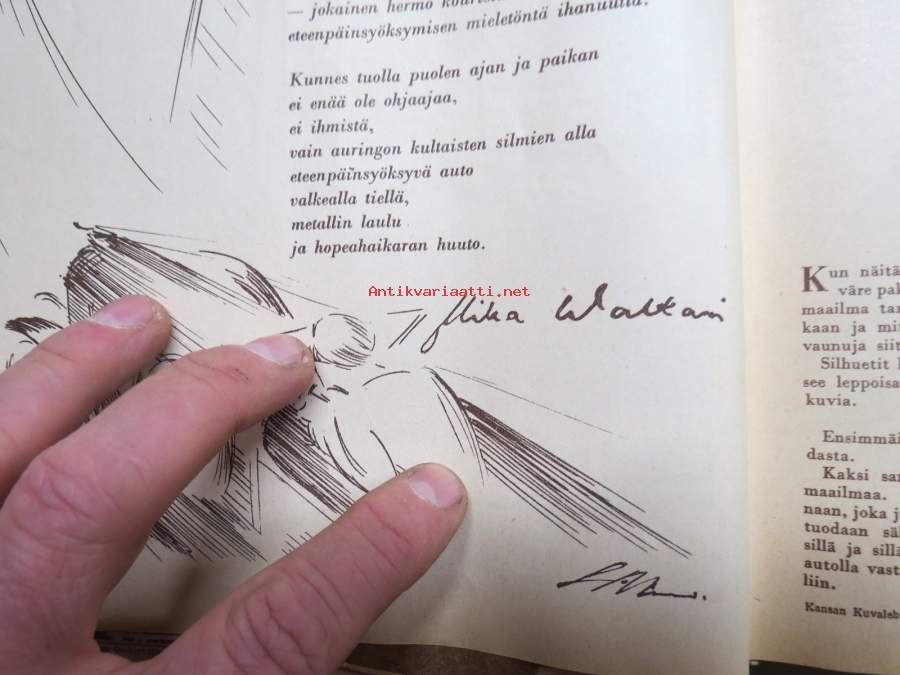 — jokainen hermo
eteenpäinsyöksymisen mieletöntä ihanuutta.
Kunnes tuolla puolen ajan ja paikan
ei enää ole ohjaajaa,
ei ihmistä,
vain auringon kultaisten silmien alla
eteenpäinsyöksyvä auto
valkealla tiellä,
metallin laulu
ja hopeahaikaran huuto.
Antikvariaatti.net
Mika Waltari
Kun näitä
väre pak
maailma tar
kaan ja mit
vaunuja siit
Silhuetit l
see leppoisa
kuvia.
Ensimmäi
dasta.
Kaksi sar
maailmaa.
naan, joka j
tuodaan säl
sillä ja sill
autolla vast
liin.
Kansan Kuvaleh